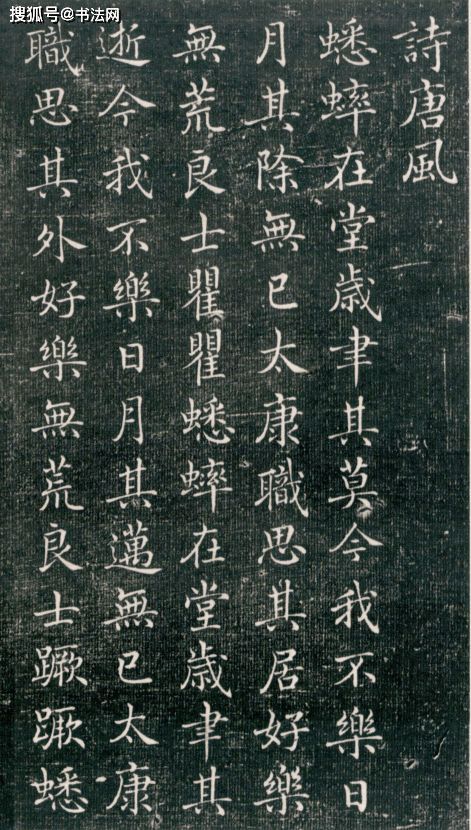 搜狐号@书法网
詩唐風
蟋蟀在堂歲聿其莫今我不樂日
月其除無已太康職思其居好樂
無荒良士瞿瞿蟋蟀在堂歲聿其
逝今我不樂日月其邁無已太康
職思其外好樂無荒良士蹶蹶蟋